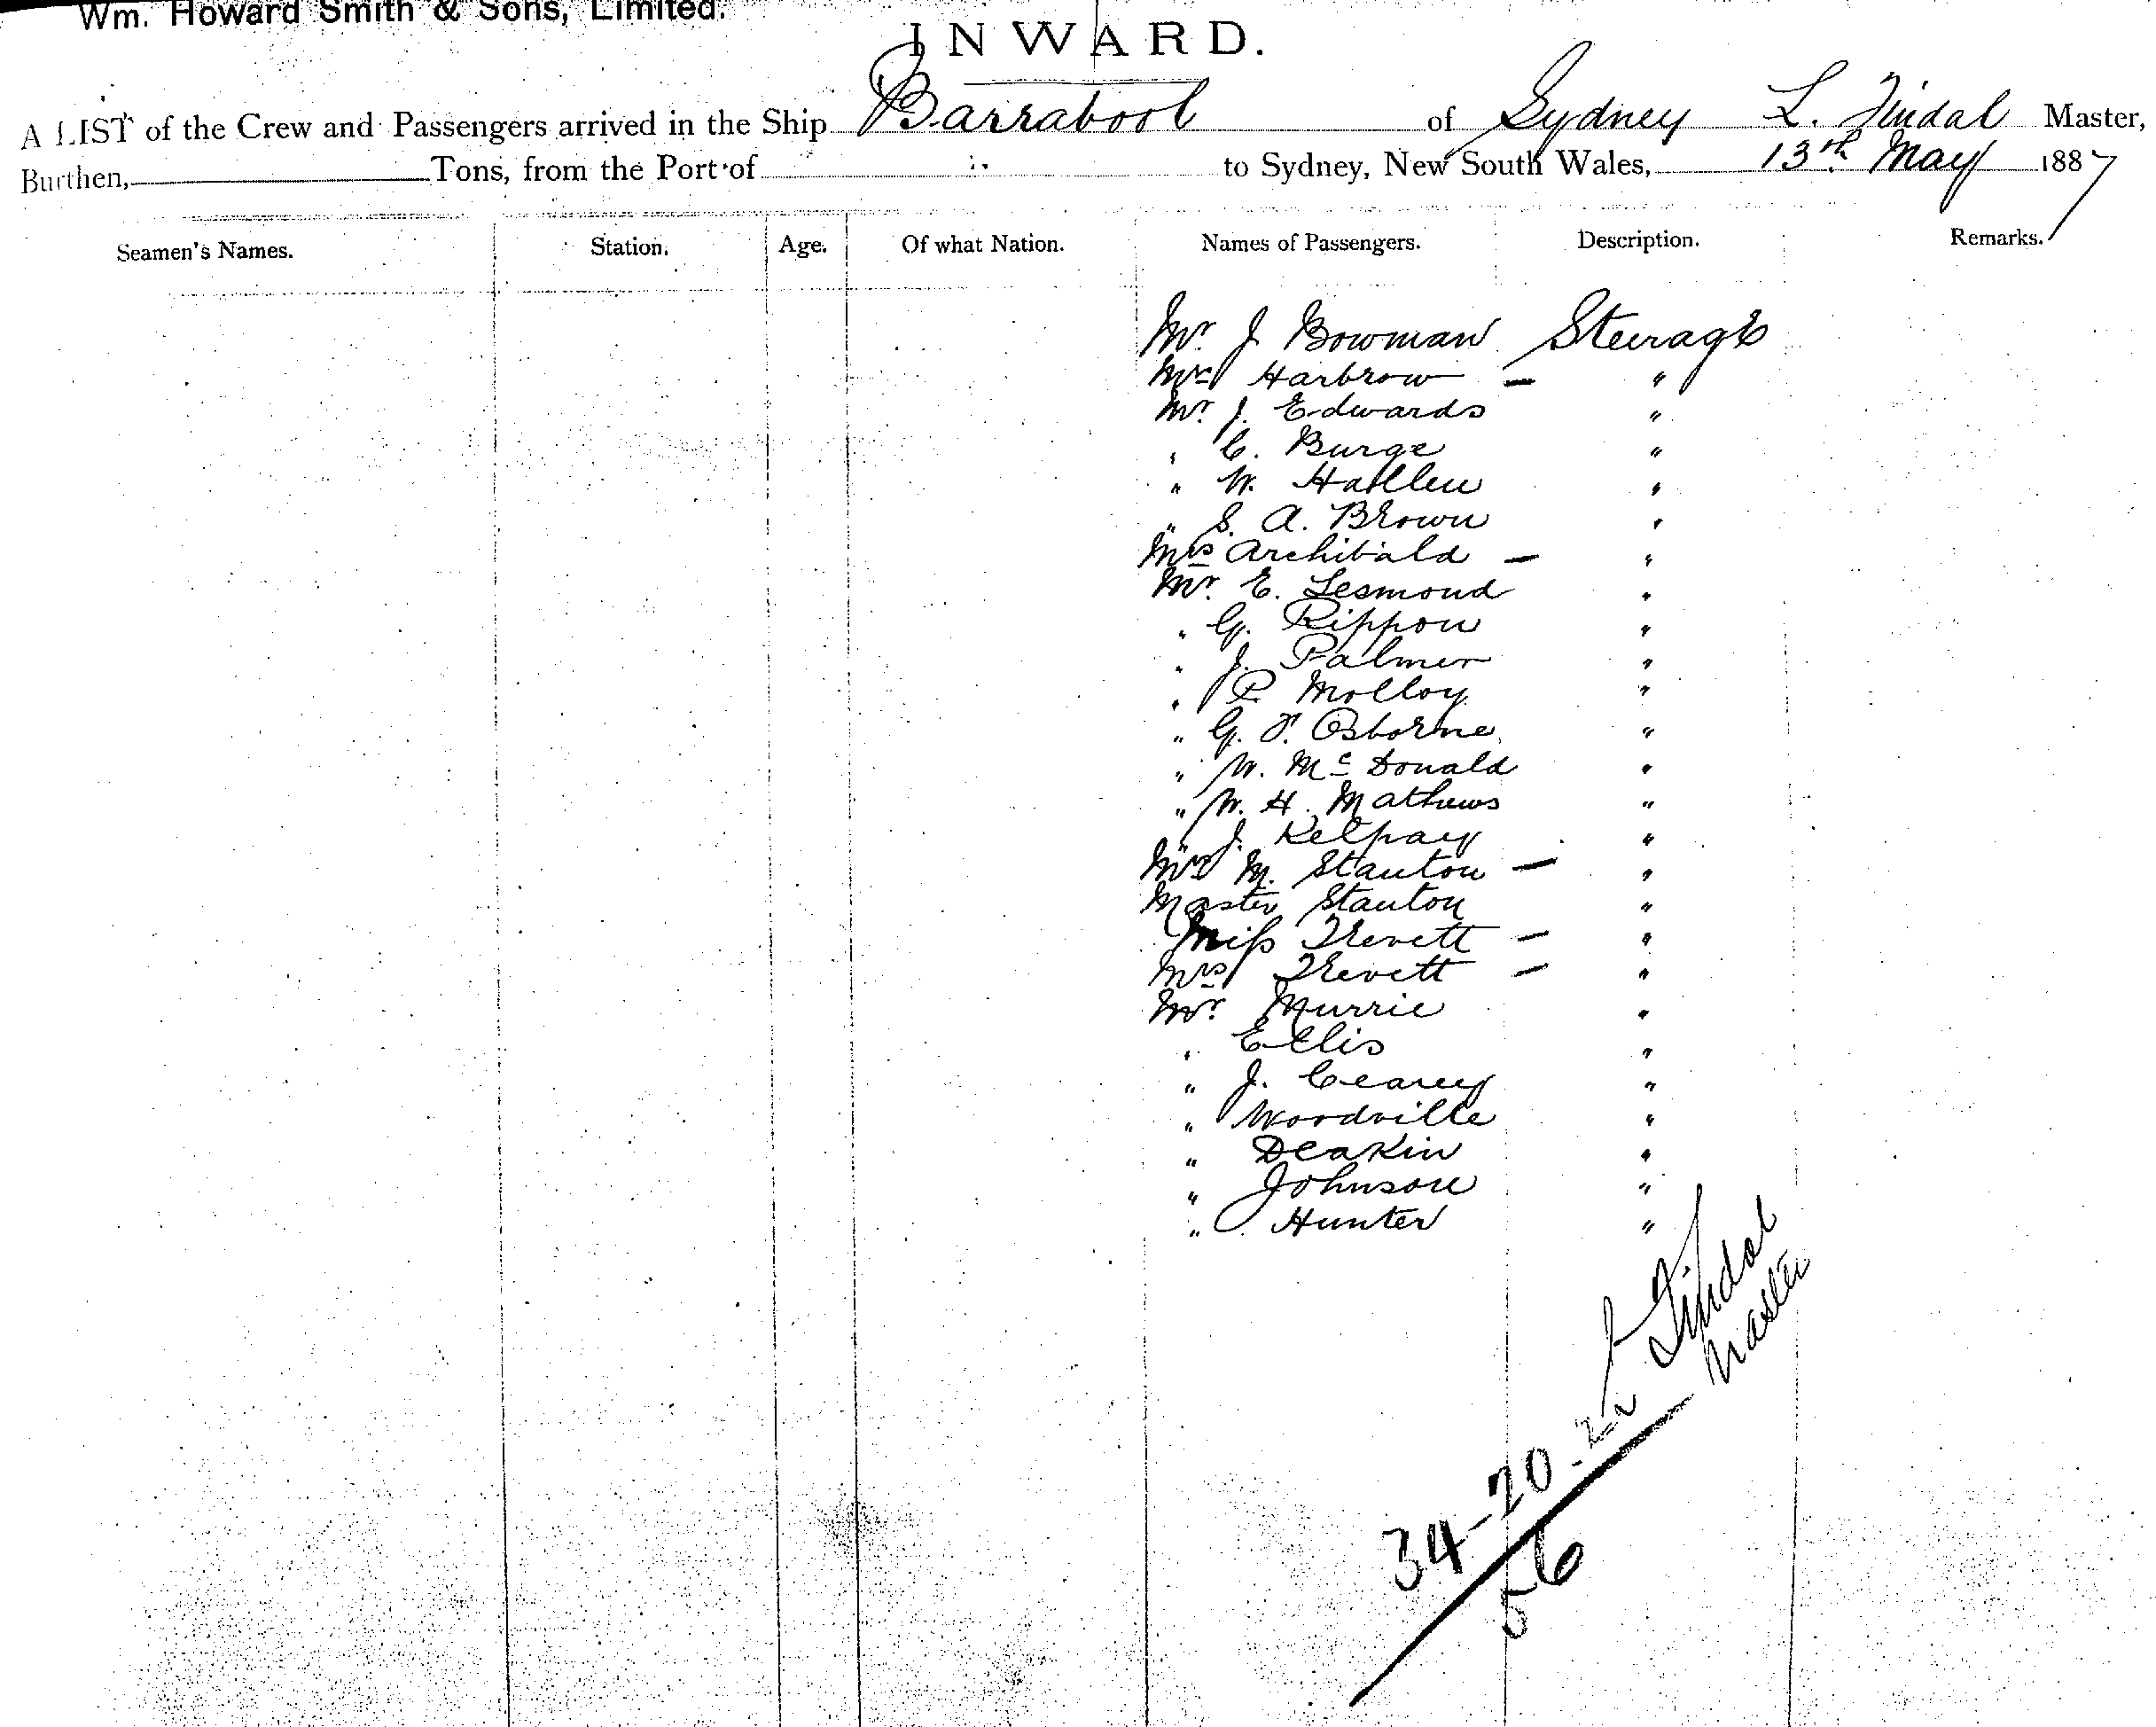 Wm. Howard Smith & Sons, Limited.
INWARD.
A LIST of the Crew and Passengers arrived in the Ship Barrabool of Sydney L. Tindal Master,
Burthen, Tons, from the Port of to Sydney, New South Wales, 13th May 1887
Seamen's Names. Station. Age. Of what Nation. Names of Passengers. Description. Remarks.
Mr. J Bowman Steerage
Mrs Harbrow — "
Mr. J. Edwards "
" C. Burge "
" W. Hallen "
" S. A. Brown "
Mrs Archibald — "
Mr. E. Lesmond "
" G. Rippon "
" J. Palmer "
" P. Molloy "
" G. F. Osborne "
" W. McDonald "
" W. H. Mathews "
" J. Kelpay "
Mrs M. Stanton — "
Master Stanton "
Miss Trevett — "
Mrs Trevett — "
Mr. Murrie "
" Ellis "
" J. Cearey "
" Woodville "
" Deakin "
" Johnson "
" Hunter "
L Tindal
Master
34-20.22
56